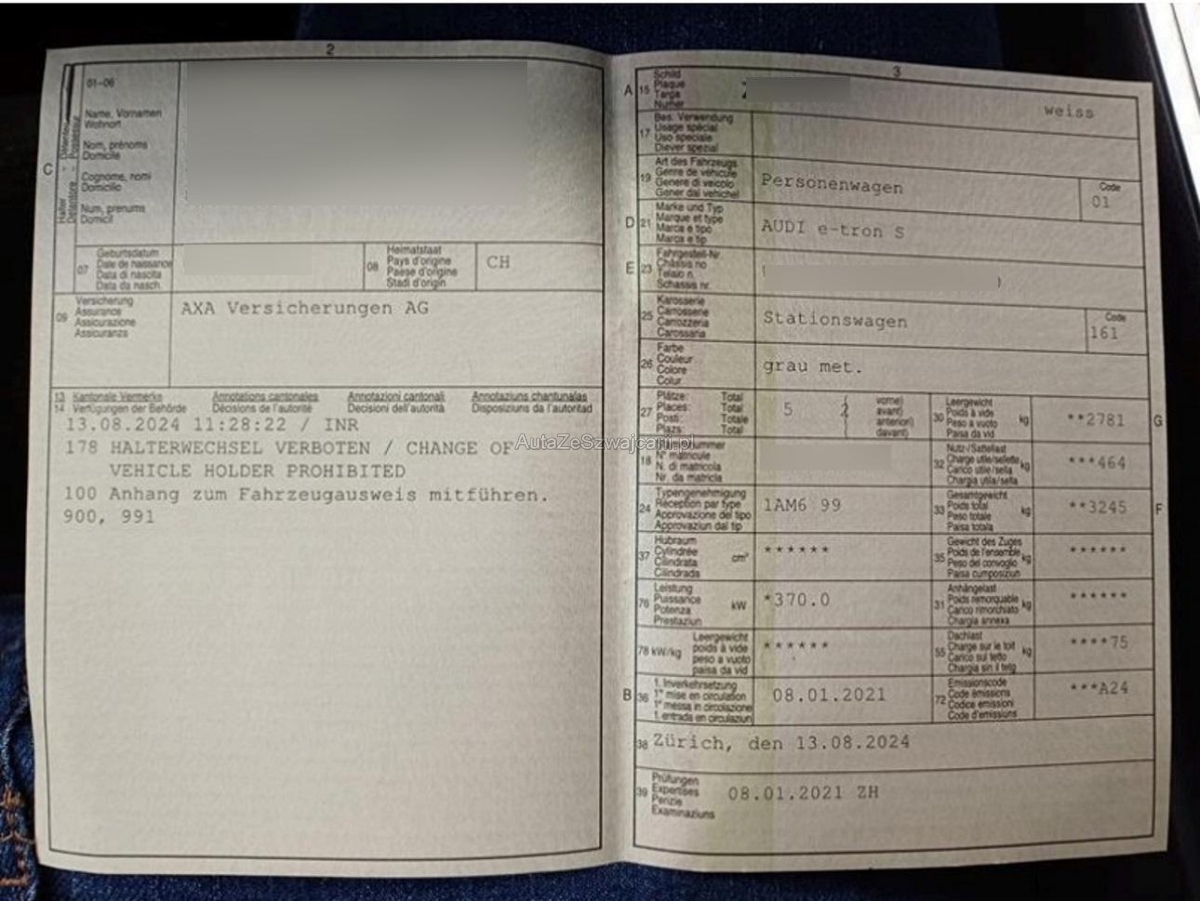 2
01-06
Name, Vornamen
Wohnort
Nom, prénoms
Domicile
Cognome, nomi
Domicilio
Num, prenums
Domicil
C
Halter - Détenteur
Detentore - Possessur
07
Geburtsdatum
Date de naissance
Data di nascita
Data da nasch.
08
Heimatstaat
Pays d'origine
Paese d'origine
Stadi d'origin
CH
09
Versicherung
Assurance
Assicurazione
Assicuranza
AXA Versicherungen AG
13 Kantonale Vermerke Annotations cantonales Annotazioni cantonali Annotaziuns chantunalas
14 Verfügungen der Behörde Décisions de l'autorité Decisioni dell'autorità Disposiziuns da l'autoritad
13.08.2024 11:28:22 / INR
178 HALTERWECHSEL VERBOTEN / CHANGE OF
VEHICLE HOLDER PROHIBITED
100 Anhang zum Fahrzeugausweis mitführen.
900, 991
AutaZeSzwajcarii.pl
3
A 15
Schild
Plaque
Targa
Numer
weiss
17
Bes. Verwendung
Usage spécial
Uso speciale
Diever spezial
19
Art des Fahrzeugs
Genre de véhicule
Genere di veicolo
Gener dal vehichel
Personenwagen
Code
01
D 21
Marke und Typ
Marque et type
Marca e tipo
Marca e tip
AUDI e-tron S
E 23
Fahrgestell-Nr.
Châssis no
Telaio n.
Schassis nr.
25
Karosserie
Carrosserie
Carrozzeria
Carossaria
Stationswagen
Code
161
26
Farbe
Couleur
Colore
Colur
grau met.
27
Plätze: Total
Places: Total
Posti: Totale
Plazs: Total
5 ( 2
vorne)
avant)
anteriori)
davant)
30
Leergewicht
Poids à vide
Peso a vuoto
Paisa da vid
kg
**2781
G
18
N° matricule
N. di matricola
Nr. da matricla
32
Nutz-/Sattellast
Charge utile/sellette
Carico utile/sella
Chargia utila/sella
kg
***464
24
Typengenehmigung
Réception par type
Approvazione del tipo
Approvaziun dal tip
1AM6 99
33
Gesamtgewicht
Poids total
Peso totale
Paisa totala
kg
**3245
F
37
Hubraum
Cylindrée
Cilindrata
Cilindrada
cm³
******
35
Gewicht des Zuges
Poids de l'ensemble
Peso del convoglio
Paisa cumposiziun
kg
******
76
Leistung
Puissance
Potenza
Prestaziun
kW
*370.0
31
Anhängelast
Poids remorquable
Carico rimorchiato
Chargia annexa
kg
******
78 kW/kg
Leergewicht
poids à vide
peso a vuoto
paisa da vid
******
55
Dachlast
Charge sur le toit
Carico sul tetto
Chargia sin il tetg
kg
****75
B 36
1. Inverkehrsetzung
1re mise en circulation
1a messa in circolazione
1. entrada en circulaziun
08.01.2021
72
Emissionscode
Code émissions
Codice emissioni
Code d'emissiuns
***A24
38 Zürich, den 13.08.2024
39
Prüfungen
Expertises
Perizie
Examinaziuns
08.01.2021 ZH